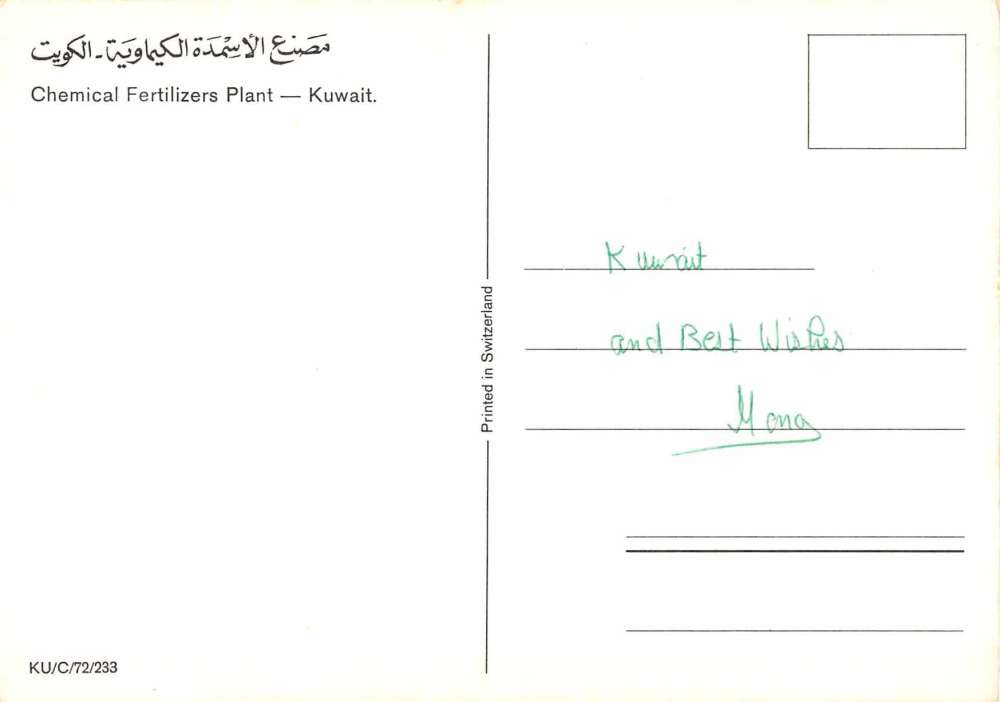 مصنع الاسمدة الكيماوية - الكويت
Chemical Fertilizers Plant — Kuwait.
Printed in Switzerland
Kuwait
and Best Wishes
Mona
KU/C/72/233